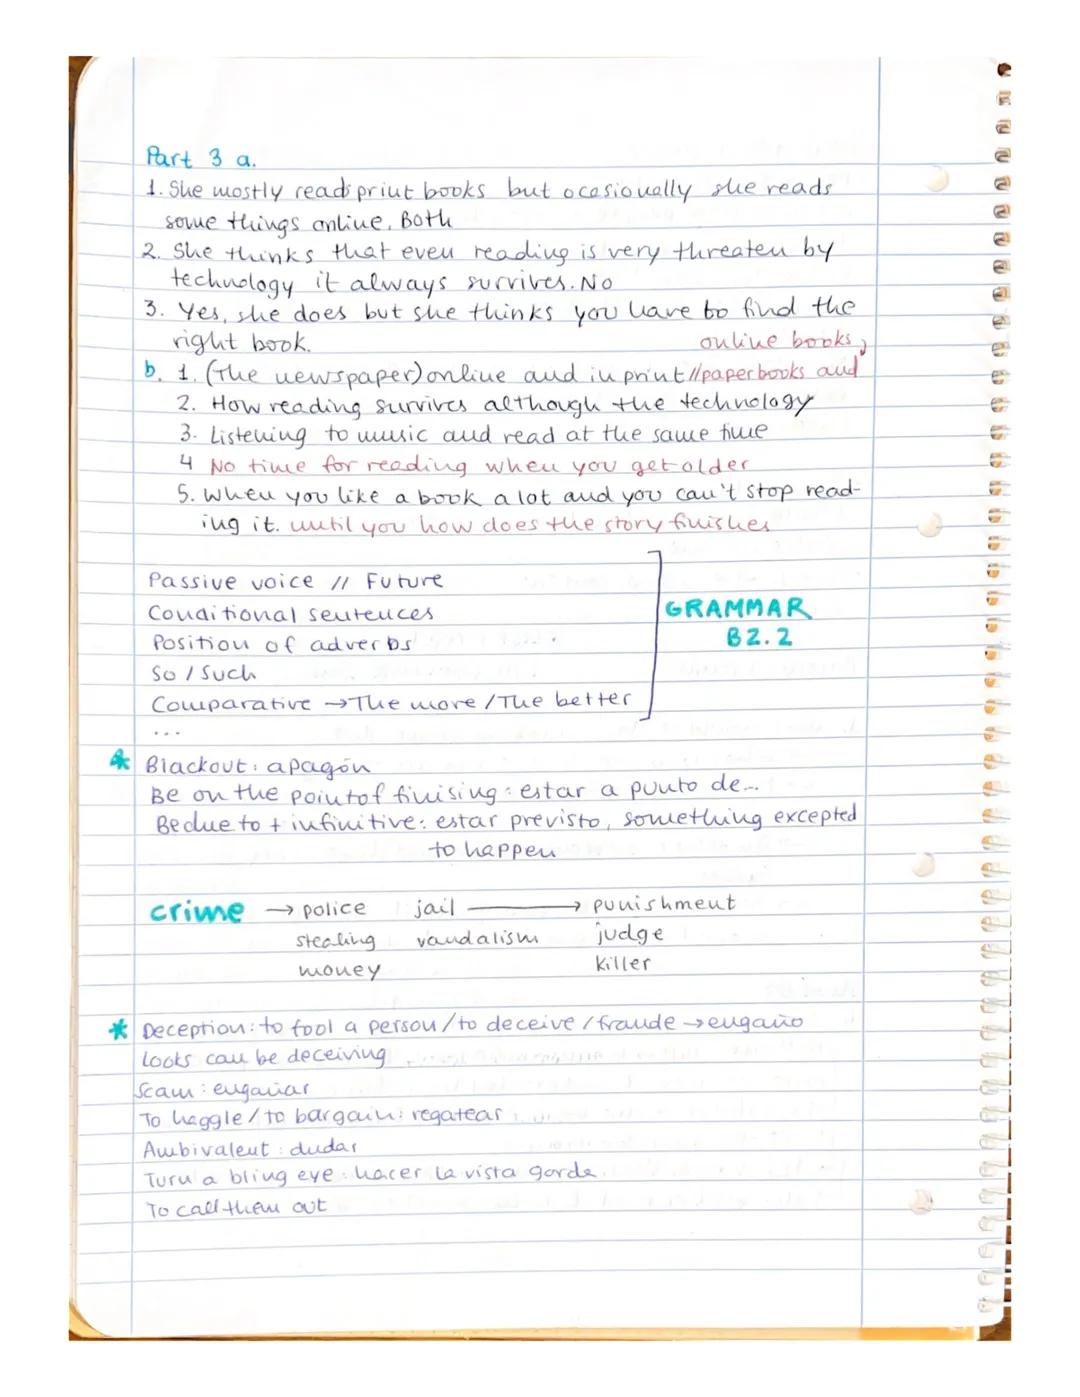 Part 3 a.
1. She mostly reads print books but ocasionally she reads
some things online. Both
2. She thinks that even reading is very threaten by
technology it always survives. No
3. Yes, she does but she thinks you have to find the
right book.
online books,
b. 1. (The newspaper) online and in print // paperbooks and
2. How reading survives although the technology
3. Listening to music and read at the same time
4 No time for reading when you get older
5. When you like a book a lot and you can't stop read-
ing it. until you how does the story finishes
Passive voice // Future
Conditional sentences
GRAMMAR
Position of adverbs
B2.2
So / Such
Comparative → The more / The better
...
* Blackout: apagón
Be on the point of finising: estar a punto de...
Be due to + infinitive: estar previsto, something excepted
to happen
crime → police jail → punishment
stealing vandalism judge
money killer
* Deception: to fool a person / to deceive / fraude → engaño
Looks can be deceiving
Scam: engañar
To haggle / to bargain: regatear
Ambivalent: dudar
Turn a bling eye: hacer la vista gorda
To call them out